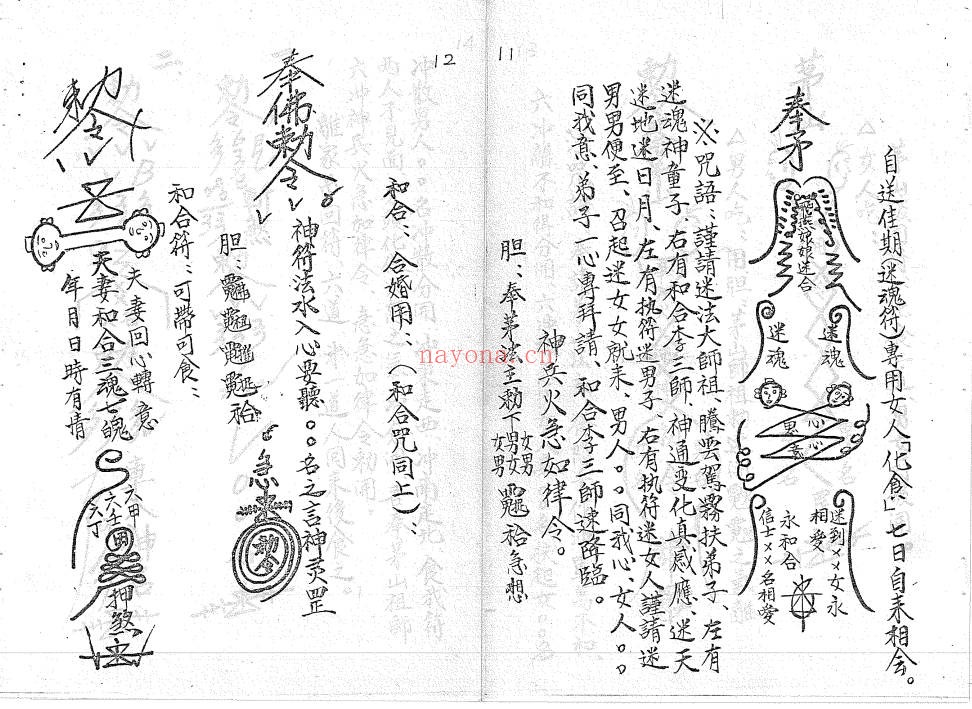 11
自送佳期(迷魂符)專用女人「化食」七日自来相会。
奉
娘娘迷合
迷魂
迷魂
心心
迷到××女永
相愛
永和合
信士××名相愛
※咒語:謹請迷法大師祖、騰雲駕霧扶弟子、左有
迷魂神童子、右有和合李三師、神通变化真感應、迷天
迷地迷日月、左有执符迷男子、右有执符迷女人謹請迷
男男便至、召起迷女女就来、男人。。同我心、女人。。
同我意、弟子一心專拜請、和合李三師速降臨。
神兵火急如律令。
胆:奉茅法主勅下男女男女女男急想
12
和合:合婚用:(和合咒同上):
奉佛勅令
神符法水入心要聽。。名之言神灵罡
胆:
急
勅令
和合符:可帶可食:
勅令
夫妻回心轉意
夫妻和合三魂七魄
年月日時有情
六甲
六壬
六丁
押煞
nayona.cn